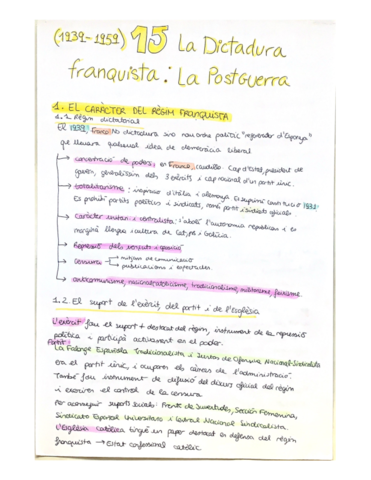 (1939-1959) 15 La Dictadura
franquista: La Postguerra
1. EL CARÀCTER DEL RÈGIM FRANQUISTA
1.1. Règim dictatorial
El 1939, Franco No dictadura sino nou ordre polític "regenerador d'Espanya"
que lliurara qualsevol idea de democràcia liberal
→ concentració de poders, en Franco, caudillo Cap d'Estat, president de
govern, generalíssim dels 3 exèrcits i cap nacional d'un partit únic.
→ totalitarisme: inspiració d'Itàlia i alemanya. Es suprimí 1931
Es prohibí partits polítics i sindicats, només partit i sindicats oficials
→ Caràcter unitari i centralista: l'abolí l'autonomia republicana i es
marginà llengua i cultura de Cat, PB i Galícia.
→ Repressió dels vençuts i oposició
→ censura → mitjans de comunicació
→ publicacions i espectacles
→ anticomunisme, nacionalcatolicisme, tradicionalisme, militarisme, feixisme.
1.2. El suport de l'exèrcit, del partit i de l'església
L'exèrcit fou el suport + destacat del règim, instrument de la repressió
política i participà activament en el poder.
Partit:
La Falange Española Tradicionalista i Juntas de Ofensiva Nacional-Sindicalista
era el partit únic, i ocuparen els càrrecs de l'administració.
També fou instrument de difusió del discurs oficial del règim
i exerciren el control de la censura
Per aconseguir suports socials: Frente de Juventudes, Sección Femenina,
Sindicato Español Universitario i Central Nacional Sindicalista.
L'Església Catòlica tingué un paper destacat en defensa del règim
franquista → Estat confessional catòlic